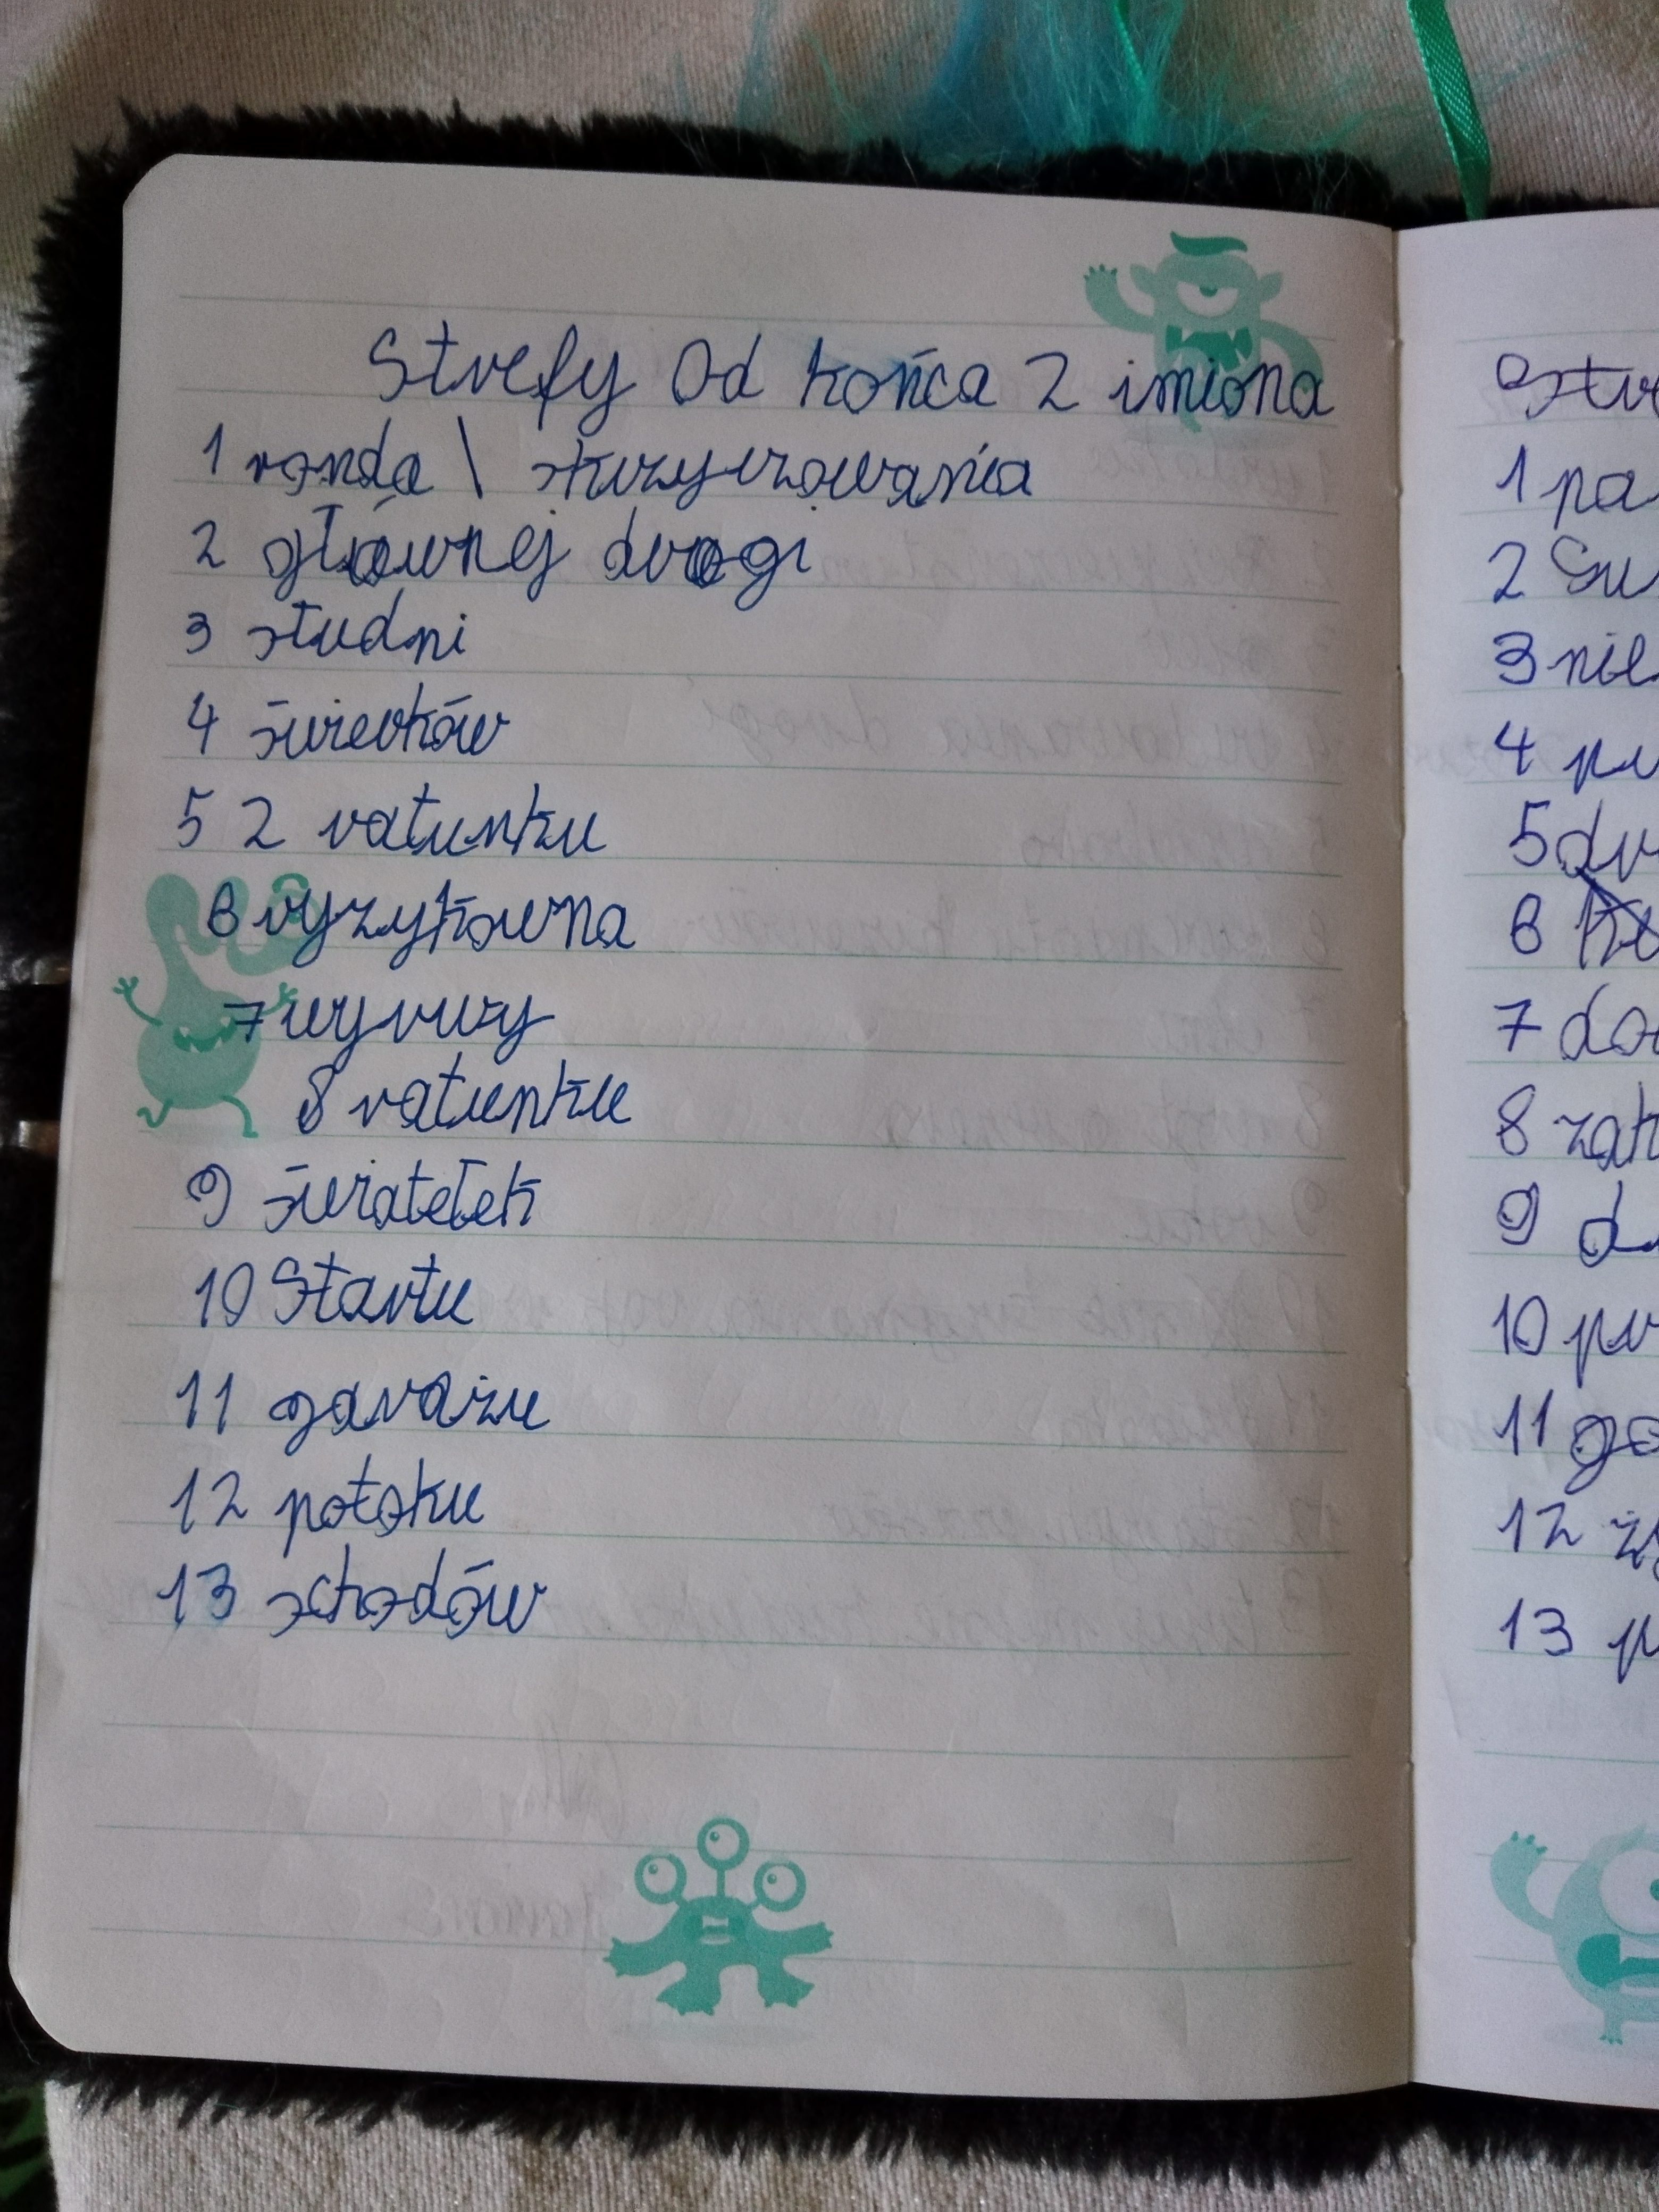 Strefy Od końca 2 imiona
1 ronda \ skrzyżowania
2 głównej drogi
3 studni
4 świerków
5 2 ratunku
6 ryzykowna
7 wyrwy
8 ratunku
9 światełek
10 Startu
11 garażu
12 potoku
13 schodów
1 pa
2 Su
3 nie
4 pr
5 dr
6
7 do
8 zak
9 d
10 pr
11 go
12
13 p